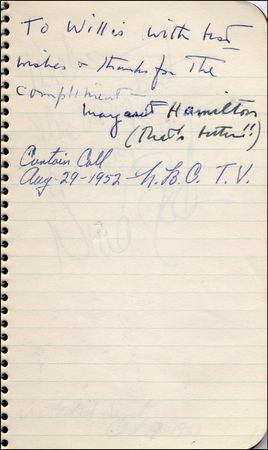 To Willis with best
wishes & thanks for The
compliment—
Margaret Hamilton
(That's better!!)
Curtain Call
Aug-29-1952 — N.B.C. T.V.